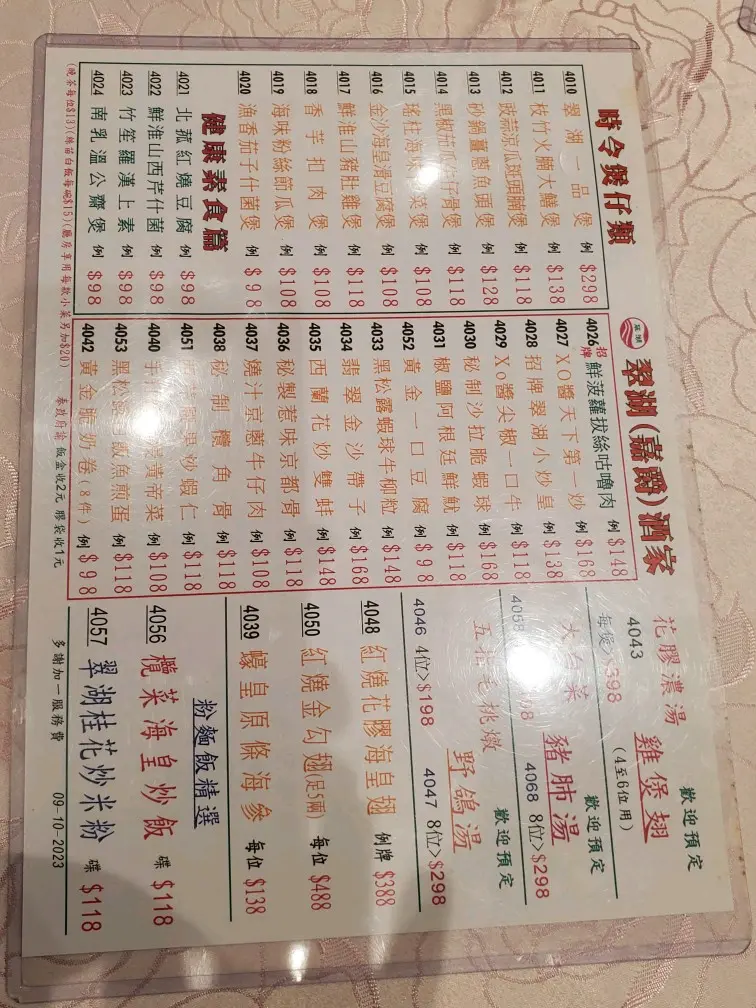 翠湖(嘉爵)酒家
時令煲仔類
4010 翠湖一品煲 例 $298
4011 枝竹火腩大鱔煲 例 $138
4012 豉蒜涼瓜斑頭腩煲 例 $118
4013 砂鍋薑蔥魚頭煲 例 $128
4014 黑椒茄瓜牛仔骨煲 例 $118
4015 瑤柱海味 菜煲 例 $108
4016 金沙海皇滑豆腐煲 例 $108
4017 鮮淮山豬肚雞煲 例 $118
4018 香芋扣肉煲 例 $108
4019 海味粉絲節瓜煲 例 $108
4020 漁香茄子什菌煲 例 $98
健康素食篇
4021 北菰紅燒豆腐 例 $98
4022 鮮淮山西芹什菌 例 $98
4023 竹笙羅漢上素 例 $98
4024 南乳溫公齋煲 例 $98
4026 招牌 鮮菠蘿拔絲咕嚕肉 例 $148
4027 XO醬天下第一炒 例 $168
4028 招牌翠湖小炒皇 例 $138
4029 Xo醬尖椒一口牛 例 $118
4030 秘制沙拉脆蝦球 例 $168
4031 椒鹽阿根廷鮮魷 例 $118
4052 黃金一口豆腐 例 $98
4033 黑松露蝦球牛柳粒 例 $148
4034 翡翠金沙帶子 例 $168
4035 西蘭花炒雙蚌 例 $148
4036 秘製惹味京都骨 例 $118
4037 燒汁京蔥牛仔肉 例 $108
4038 秘制欖角骨 例 $118
4051 果炒蝦仁 例 $118
4040 手 黃帝菜 例 $108
4053 黑松 魚煎蛋 例 $118
4042 黃金脆奶卷(8件) 例 $98
花膠濃湯 雞煲翅 歡迎預定
4043 每煲>$398 (4至6位用)
大白菜 豬肺湯 歡迎預定
4058 4068 8位>$298
五指毛桃燉 野鴿湯 歡迎預定
4046 4位>$198 4047 8位>$298
4048 紅燒花膠海皇翅 例牌 $388
4050 紅燒金勾翅(足5兩) 每位 $488
4039 蠔皇原條海參 每位 $138
粉麵飯精選
4056 欖菜海皇炒飯 碟 $118
4057 翠湖桂花炒米粉 碟 $118
(晚茶每位$13)(絲苗白飯每碗$15)(廳房享用每款小菜另加$20) 奉政府諭 飯盒收2元 膠袋收1元 多謝加一服務費 09-10-2023